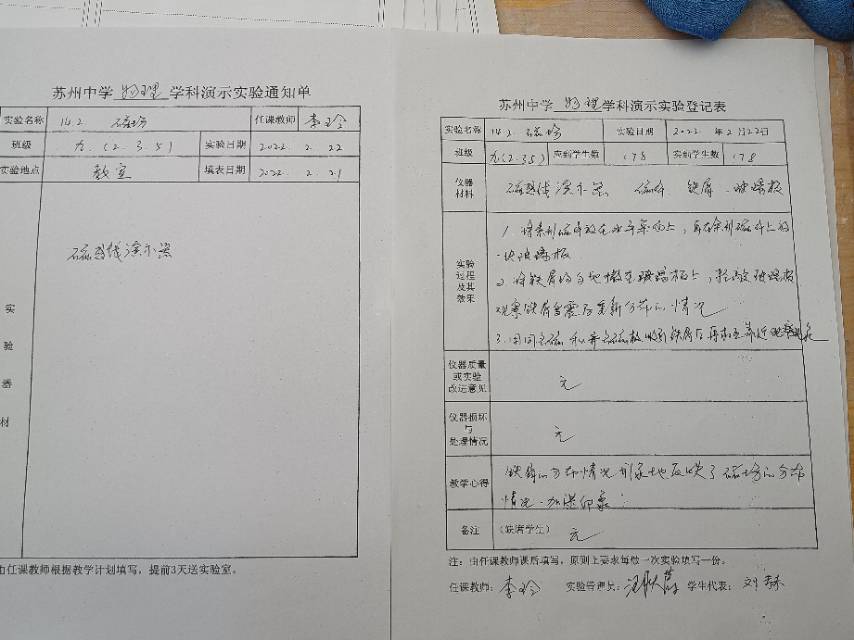 苏州中学 物理 学科演示实验通知单
实验名称 14.2. 磁场 任课教师 李玲
班级 九(2.3.5) 实验日期 2022. 2. 22
实验地点 教室 填表日期 2022. 2. 21
实验器材
磁感线演示器
由任课教师根据教学计划填写，提前3天送实验室。
苏州中学 物理 学科演示实验登记表
实验名称 14.2. 磁场 实验日期 2022. 年2月22日
班级 九(2.35) 实验学生数 178 实验学生数 178
仪器材料 磁感线演示器 磁体 铁屑 玻璃板
实验过程及其效果
1. 将条形磁体放在水平桌面上，再在条形磁体上放
一块玻璃板
2. 将铁屑均匀地撒在玻璃板上，轻敲玻璃板
观察铁屑受震后重新分布的情况
3. 用同名磁 和异名磁极吸引铁屑后再相互靠近
仪器质量或实验改进意见 无
仪器损坏与处理情况 无
教学心得 铁屑的分布情况形象地反映了磁场的分布
情况，加深印象
备注 （缺席学生） 无
注：由任课教师课后填写，原则上要求每做一次实验填写一份。
任课教师：李玲 实验管理员： 学生代表：刘